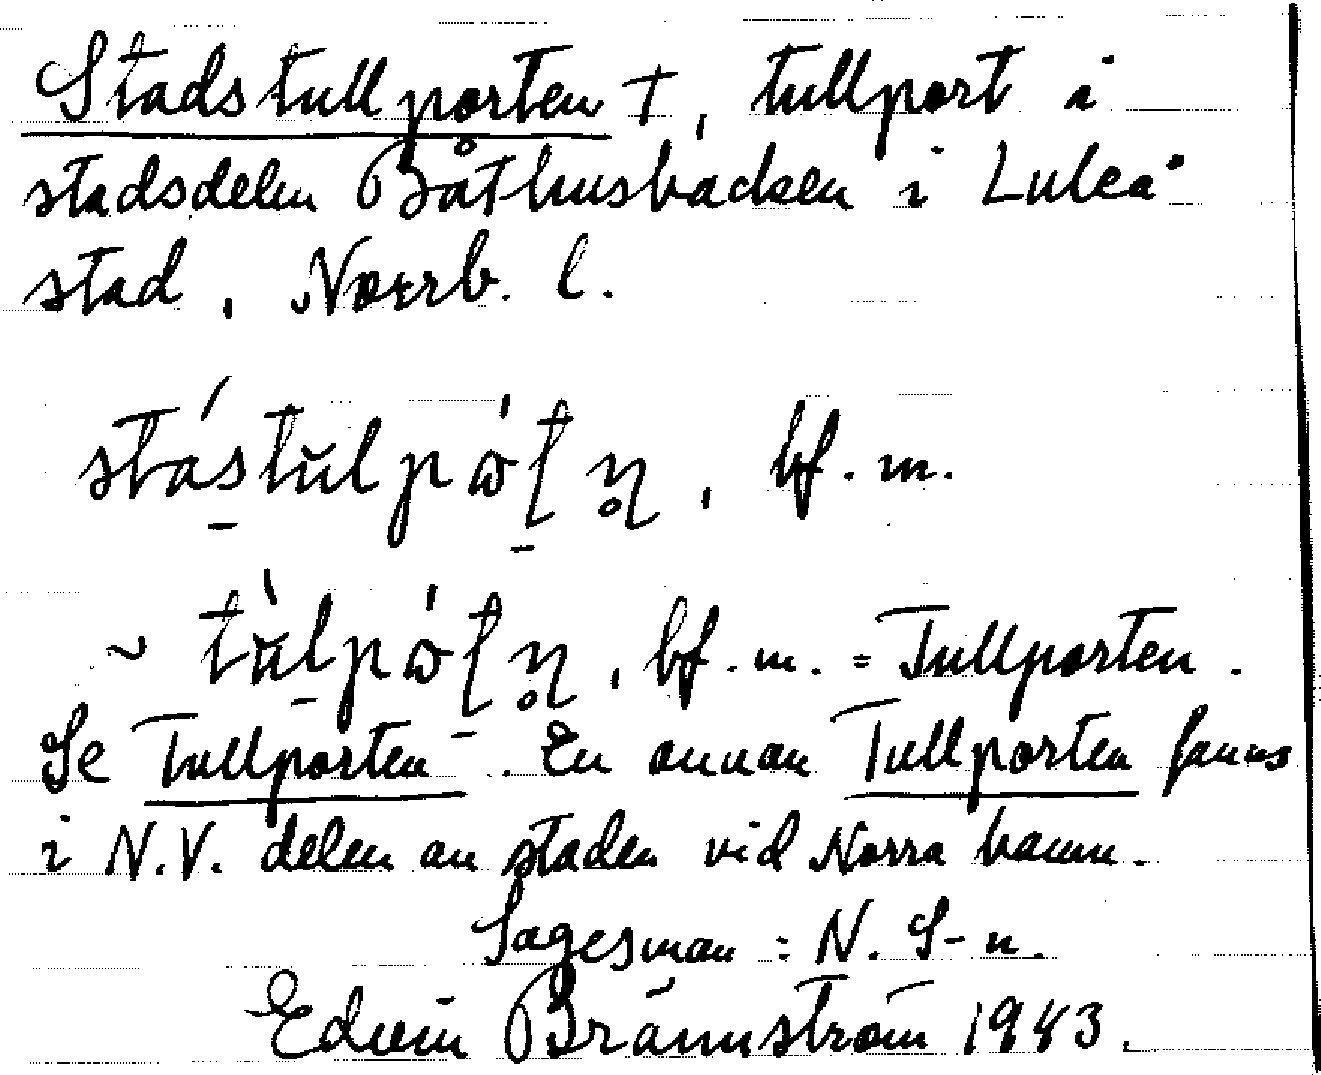 Stadstullporten †, tullport i
stadsdelen Båthusbacken i Luleå
stad, Norrb. l.
bf. m.
~ bf. m. = Tullporten.
Se Tullporten. En annan Tullporten fanns
i N.V. delen av staden vid Norra hamn.
Sagesman: N. S-n.
Edvin Brännström 1943.